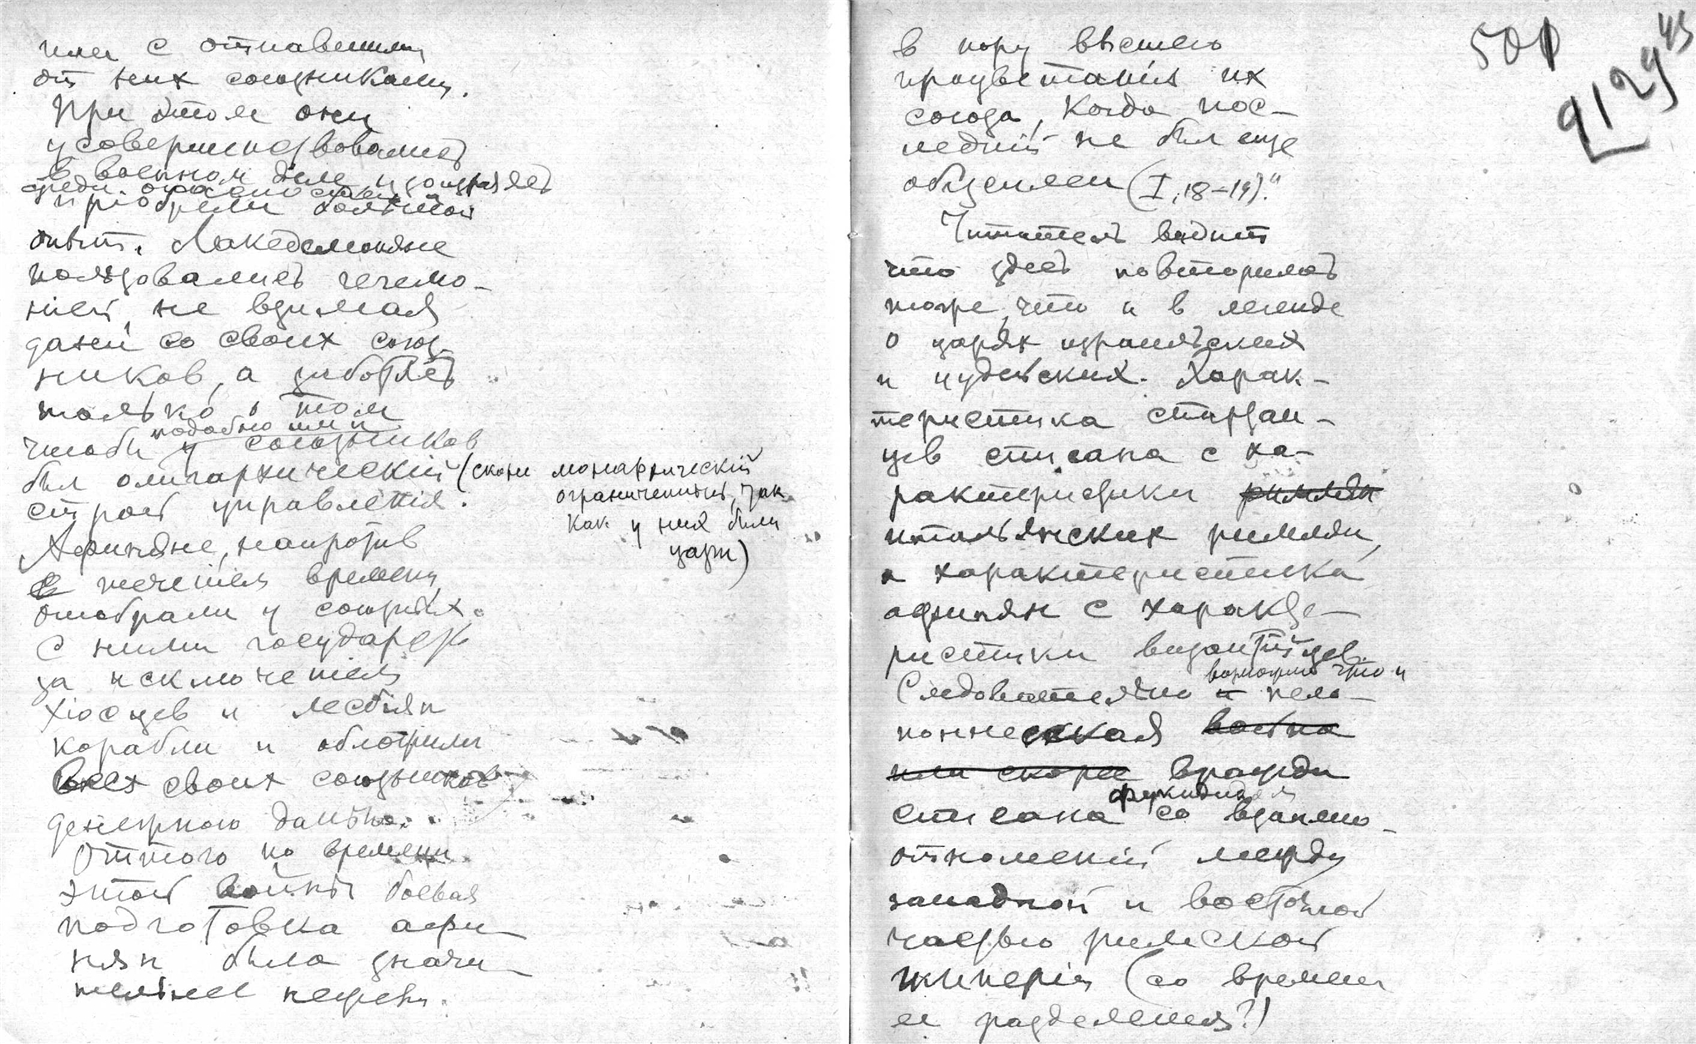 или с отпавшими
от них союзниками.
При этом они
усовершенствовались
в военном деле и
среди опасностей
приобрели большой
опыт. Лакедемоняне
пользовались гегемо-
ніей, не взимая
даней со своих союз-
ников, а заботясь
только о том
чтобы подобно им и у союзников
был олигархический (сколи монархическій
ограниченный, так
как у них были
цари)
строй управленія.
Афиняне, напротив
с теченіем времени
отобрали у союзных
с ними государств
за исключеніем
Хіосцев и лесбіян
корабли и обложили
всех своих союзников
денежною данью.
Оттого ко времени
этой войны боевая
подготовка афи-
нян была значи-
тельнее прежн.
501
9129 45
в пору высшего
процветанія их
союза, когда пос-
ледній не был еще
обузлен (I, 18–19)."
Читатель видит
что здесь повторилось
тоже, что и в легенде
о царях израильских
и иудейских. Харак-
теристика спартан-
цев списана с ха-
рактеристики римлян
итальянских римлян,
а характеристика
афинян с характе-
ристики византійцев.
Следовательно возможно что и пело-
поннесская война
или скорее вражда
списана Фукидидом со взаимо-
отношеній между
западной и восточной
частью римской
имперіи (со времени
ее разделения?)